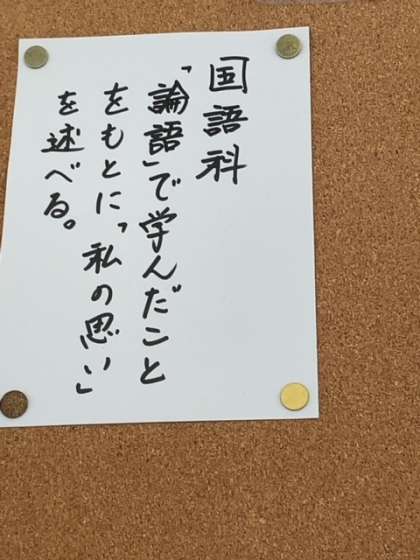 国語科
「論語」で学んだこと
をもとに「私の思い」
を述べる。